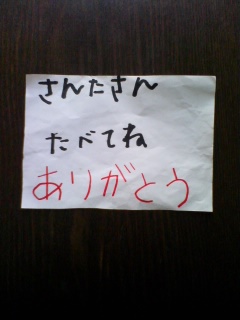 さんたさん
たべてね
ありがとう